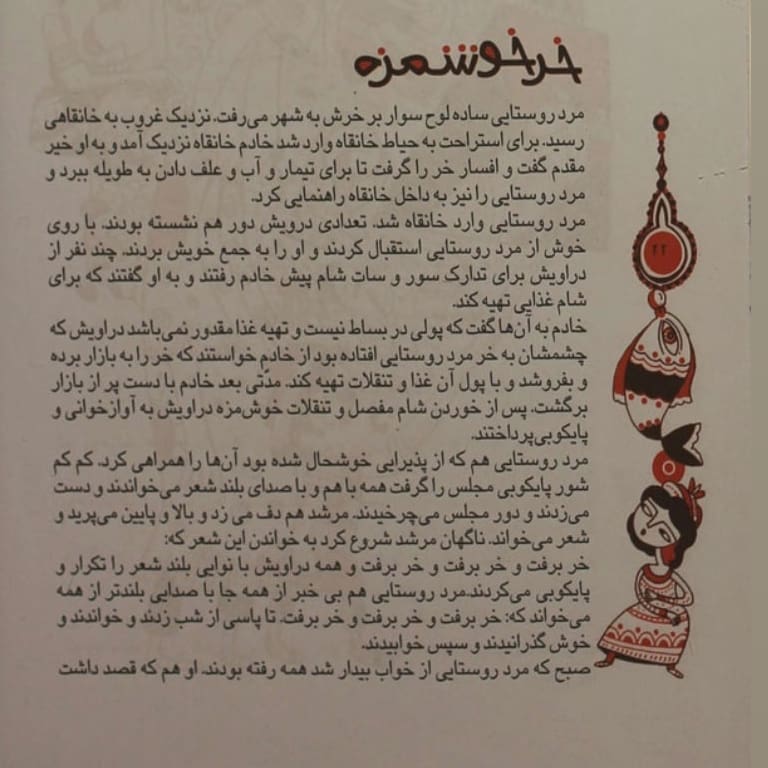 خر خوشمزه
مرد روستایی ساده لوح سوار بر خرش به شهر می‌رفت. نزدیک غروب به خانقاهی
رسید. برای استراحت به حیاط خانقاه وارد شد خادم خانقاه نزدیک آمد و به او خیر
مقدم گفت و افسار خر را گرفت تا برای تیمار و آب و علف دادن به طویله ببرد و
مرد روستایی را نیز به داخل خانقاه راهنمایی کرد.
مرد روستایی وارد خانقاه شد. تعدادی درویش دور هم نشسته بودند. با روی
خوش از مرد روستایی استقبال کردند و او را به جمع خویش بردند. چند نفر از
دراویش برای تدارک سور و سات شام پیش خادم رفتند و به او گفتند که برای
شام غذایی تهیه کند.
خادم به آن‌ها گفت که پولی در بساط نیست و تهیه غذا مقدور نمی‌باشد دراویش که
چشمشان به خر مرد روستایی افتاده بود از خادم خواستند که خر را به بازار برده
و بفروشد و با پول آن غذا و تنقلات تهیه کند. مدّتی بعد خادم با دست پر از بازار
برگشت. پس از خوردن شام مفصل و تنقلات خوش‌مزه دراویش به آوازخوانی و
پایکوبی‌پرداختند.
مرد روستایی هم که از پذیرایی خوشحال شده بود آن‌ها را همراهی کرد. کم کم
شور پایکوبی مجلس را گرفت همه با هم و با صدای بلند شعر می‌خواندند و دست
می‌زدند و دور مجلس می‌چرخیدند. مرشد هم دف می زد و بالا و پایین می‌پرید و
شعر می‌خواند. ناگهان مرشد شروع کرد به خواندن این شعر که:
خر برفت و خر برفت و خر برفت و همه دراویش با نوایی بلند شعر را تکرار و
پایکوبی می‌کردند.مرد روستایی هم بی خبر از همه جا با صدایی بلندتر از همه
می‌خواند که: خر برفت و خر برفت و خر برفت. تا پاسی از شب زدند و خواندند و
خوش گذرانیدند و سپس خوابیدند.
صبح که مرد روستایی از خواب بیدار شد همه رفته بودند. او هم که قصد داشت
۲۲